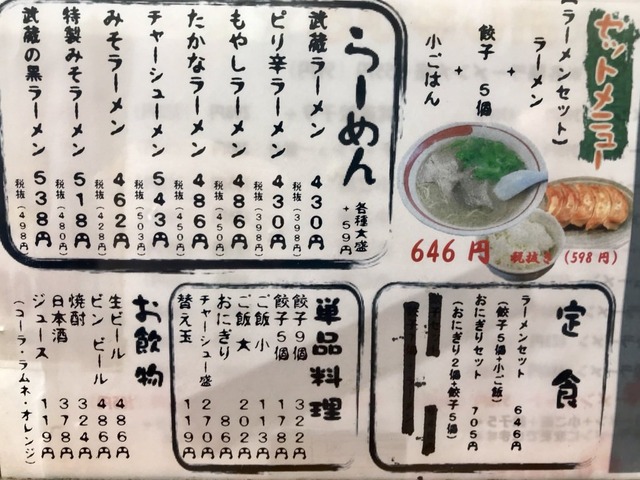 セットメニュー
【ラーメンセット】
ラーメン
+
餃子 5個
+
小ごはん
646円
税抜き (598円)
らーめん
各種大盛
+59円
武蔵ラーメン 430円
税抜(398円)
ピリ辛ラーメン 430円
税抜(398円)
もやしラーメン 486円
税抜(450円)
たかなラーメン 486円
税抜(450円)
チャーシューメン 543円
税抜(503円)
みそラーメン 462円
税抜(428円)
特製みそラーメン 518円
税抜(480円)
武蔵の黒ラーメン 538円
税抜(498円)
定食
ラーメンセット 646円
(餃子5個+小ご飯)
おにぎりセット 705円
(おにぎり2個+餃子5個)
単品料理
餃子9個 322円
餃子5個 178円
ご飯 小 113円
ご飯 大 202円
おにぎり 86円
チャーシュー盛 270円
替え玉 119円
お飲物
生ビール 486円
ビンビール 486円
焼酎 324円
日本酒 378円
ジュース 119円
(コーラ・ラムネ・オレンジ)